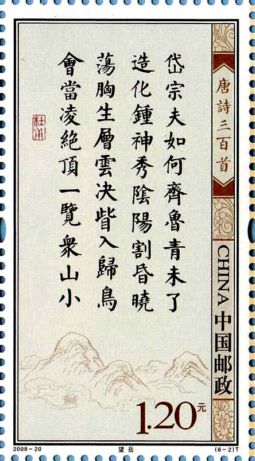 岱宗夫如何齊魯青未了
造化鍾神秀陰陽割昏曉
蕩胸生層雲決眥入歸鳥
會當凌絶頂一覽衆山小
唐詩三百首
CHINA 中国邮政
1.20元
2009-20
望岳
(6-2)T